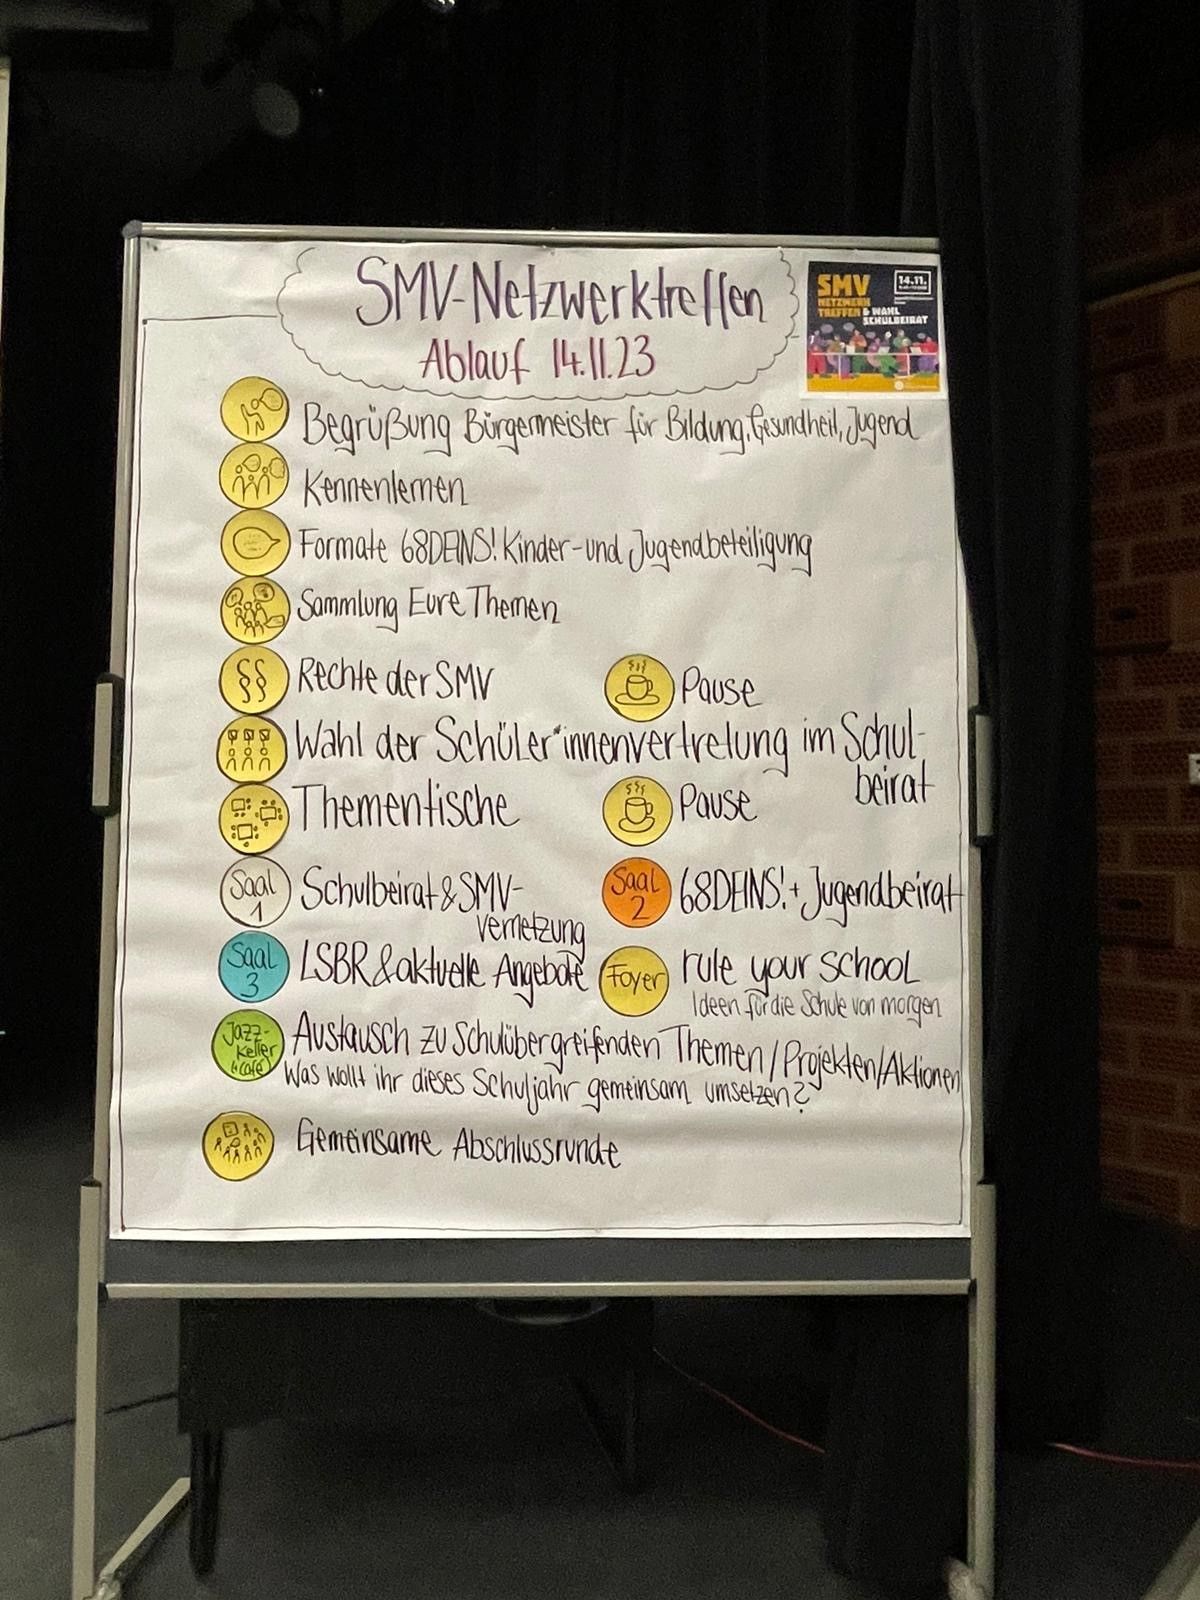 SMV-Netzwerktreffen
Ablauf 14.11.23
SMV
NETZWERK
TREFFEN & WAHL
SCHULBEIRAT
14.11.
Begrüßung Bürgermeister für Bildung, Gesundheit, Jugend
Kennenlernen
Formate 68DEINS! Kinder-und Jugendbeteiligung
Sammlung Eure Themen
§§ Rechte der SMV
Pause
Wahl der Schüler*innenvertretung im Schul-
beirat
Thementische
Pause
Saal
1
Schulbeirat & SMV-
Vernetzung
Saal
2
68DEINS! + Jugendbeirat
Saal
3
LSBR & aktuelle Angebote
Foyer
rule your school
Ideen für die Schule von morgen
Jazz-
keller
(café)
Austausch zu schulübergreifenden Themen/Projekten/Aktionen
Was wollt ihr dieses Schuljahr gemeinsam umsetzen?
Gemeinsame Abschlussrunde